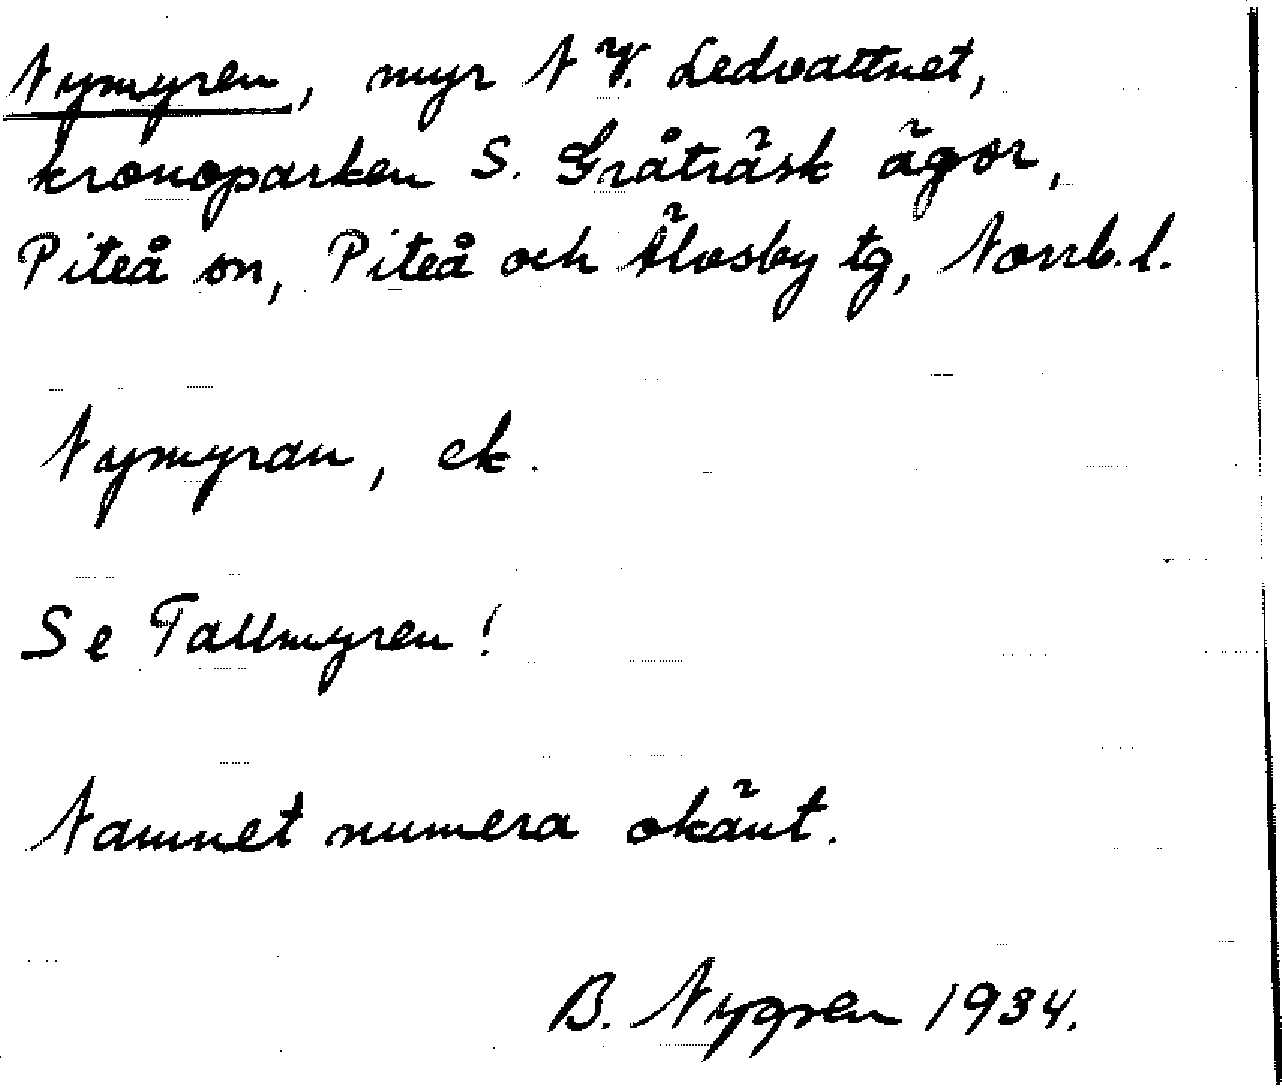 Nymyren, myr N V. Ledvattnet,
kronoparken S. Gråträsk ägor,
Piteå sn, Piteå och Älvsby tg, Norrb. l.
Nymyran, ek.
Se Tallmyren!
Namnet numera okänt.
B. Nygren 1934.